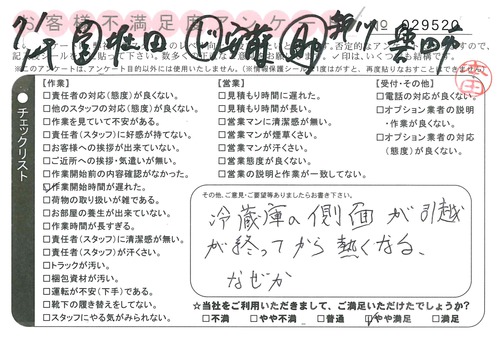 お客様不満足度アンケート
No 029520
※このアンケートは、アンケート目的以外には使用いたしません。(※情報保護シールで覆いはがすと、再度貼りなおすことできません。)
チェックリスト
【作業】
□責任者の対応(態度)が良くない。
□他のスタッフの対応(態度)が良くない。
□作業を見ていて不安がある。
□責任者(スタッフ)に好感が持てない。
□お客様への挨拶が出来ていない。
□ご近所への挨拶・気遣いが無い。
□作業開始前の内容確認がなかった。
☑作業開始時間が遅れた。
□荷物の取り扱いが雑である。
□お部屋の養生が出来ていない。
□作業時間が長すぎる。
□責任者(スタッフ)に清潔感が無い。
□責任者(スタッフ)が汗くさい。
□トラックが汚い。
□梱包資材が汚い。
□運転が不安(下手)である。
□靴下の履き替えをしてない。
□スタッフにやる気がみられない。
【営業】
□見積もり時間に遅れた。
□見積もり時間が長い。
□営業マンに清潔感が無い。
□営業マンが煙草くさい。
□営業マンが汗くさい。
□営業態度が良くない。
□営業の説明と作業が一致してない。
【受付・その他】
□電話の対応が良くない。
□オプション業者の説明
・作業が良くない。
□オプション業者の対応
(態度)が良くない。
その他、ご意見・ご要望等ありましたらお書き下さい。
冷蔵庫の側面が引越
が終ってから熱くなる、
なぜか
☆当社をご利用いただきまして、ご満足いただけたでしょうか?
□不満 □やや不満 □普通 ☑やや満足 □満足